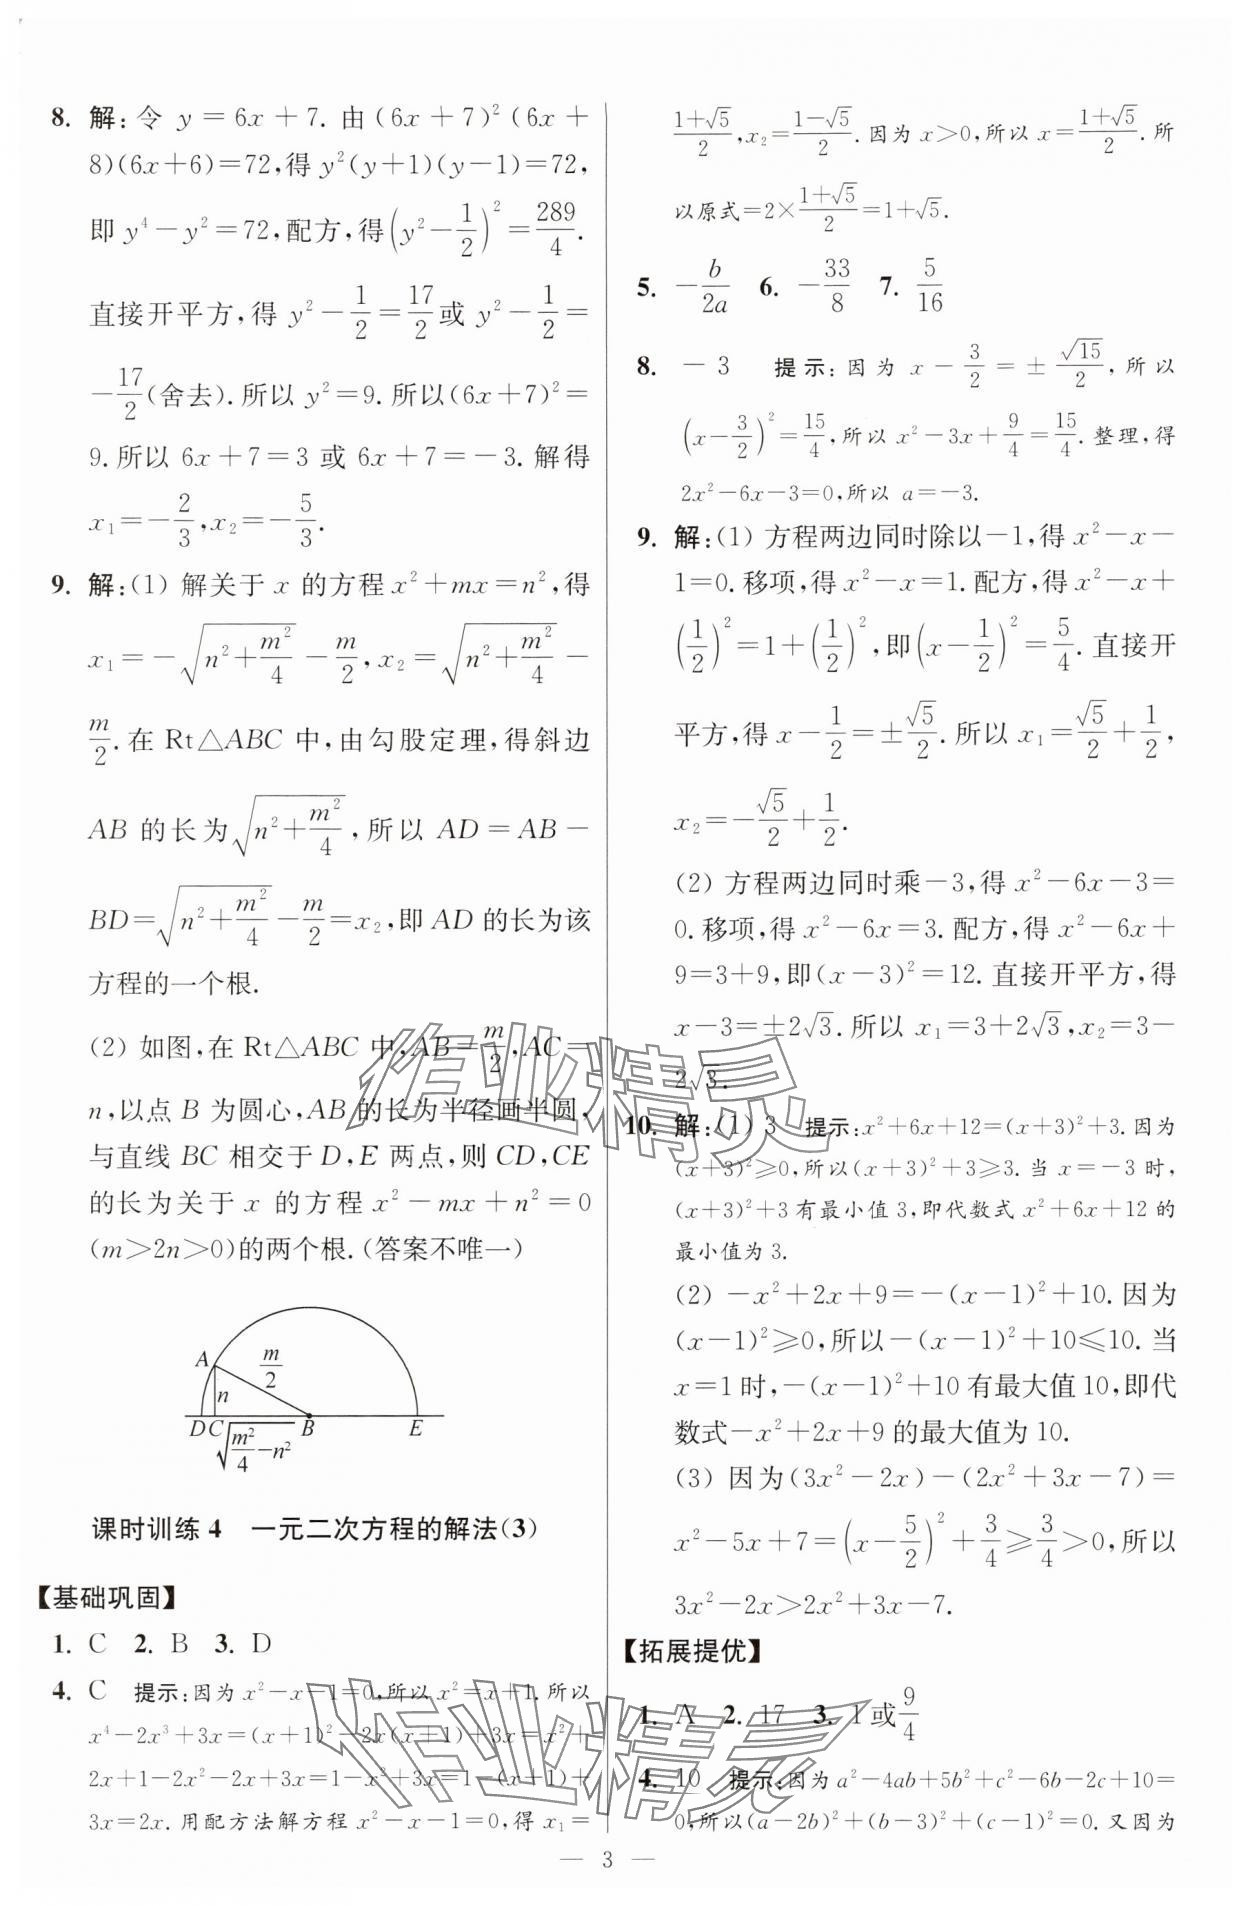 8. 解:令 y=6x+7. 由(6x+7)²(6x+
8)(6x+6)=72,得 y²(y+1)(y-1)=72,
即 y⁴-y²=72,配方,得(y²-1/2)²=289/4.
直接开平方,得 y²-1/2=17/2或 y²-1/2=
-17/2(舍去).所以 y²=9.所以(6x+7)²=
9.所以 6x+7=3 或 6x+7=-3.解得
x₁=-2/3,x₂=-5/3.
9. 解:(1) 解关于 x 的方程 x²+mx=n²,得
x₁=-√(n²+m²/4)-m/2,x₂=√(n²+m²/4)-
m/2.在 Rt△ABC 中,由勾股定理,得斜边
AB 的长为√(n²+m²/4),所以 AD=AB-
BD=√(n²+m²/4)-m/2=x₂,即 AD 的长为该
方程的一个根.
(2) 如图,在 Rt△ABC 中,AB=m/2,AC=
n,以点 B 为圆心,AB 的长为半径画半圆,
与直线 BC 相交于 D,E 两点,则 CD,CE
的长为关于 x 的方程 x²-mx+n²=0
(m>2n>0)的两个根.(答案不唯一)
A
m/2
n
D C B E
√(m²/4-n²)
课时训练 4 一元二次方程的解法(3)
【基础巩固】
1. C 2. B 3. D
4. C 提示:因为 x²-x-1=0,所以 x²=x+1.所以
x⁴-2x³+3x=(x+1)²-2x(x+1)+3x=x²+
2x+1-2x²-2x+3x=1-x²+3x=1-(x+1)+
3x=2x.用配方法解方程 x²-x-1=0,得 x₁=
(1+√5)/2,x₂=(1-√5)/2.因为 x>0,所以 x=(1+√5)/2.所
以原式=2×(1+√5)/2=1+√5.
5. -b/2a 6. -33/8 7. 5/16
8. -3 提示:因为 x-3/2=±√15/2,所以
(x-3/2)²=15/4,所以 x²-3x+9/4=15/4.整理,得
2x²-6x-3=0,所以 a=-3.
9. 解:(1) 方程两边同时除以-1,得 x²-x-
1=0.移项,得 x²-x=1.配方,得 x²-x+
(1/2)²=1+(1/2)²,即(x-1/2)²=5/4.直接开
平方,得 x-1/2=±√5/2.所以 x₁=√5/2+1/2,
x₂=-√5/2+1/2.
(2) 方程两边同时乘-3,得 x²-6x-3=
0.移项,得 x²-6x=3.配方,得 x²-6x+
9=3+9,即(x-3)²=12.直接开平方,得
x-3=±2√3.所以 x₁=3+2√3,x₂=3-
2√3.
10. 解:(1) 3 提示:x²+6x+12=(x+3)²+3.因为
(x+3)²≥0,所以(x+3)²+3≥3.当 x=-3 时,
(x+3)²+3 有最小值 3,即代数式 x²+6x+12 的
最小值为 3.
(2) -x²+2x+9=-(x-1)²+10.因为
(x-1)²≥0,所以-(x-1)²+10≤10.当
x=1时,-(x-1)²+10 有最大值 10,即代
数式-x²+2x+9 的最大值为 10.
(3) 因为(3x²-2x)-(2x²+3x-7)=
x²-5x+7=(x-5/2)²+3/4≥3/4>0,所以
3x²-2x>2x²+3x-7.
【拓展提优】
1. A 2. 17 3. 1或9/4
4. 10 提示:因为 a²-4ab+5b²+c²-6b-2c+10=
0,所以(a-2b)²+(b-3)²+(c-1)²=0.又因为
— 3 —
作业精灵
作业精灵